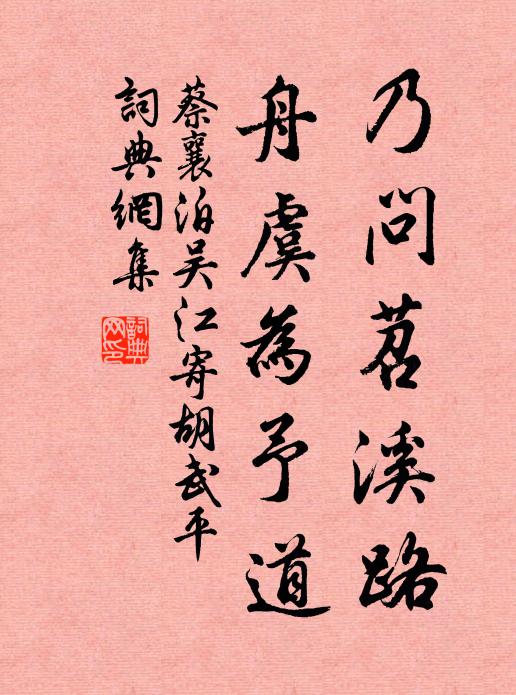 乃問苕溪路
舟虞為予道
蔡襄泊吴江寄胡武平
詞典網集
詞典網印